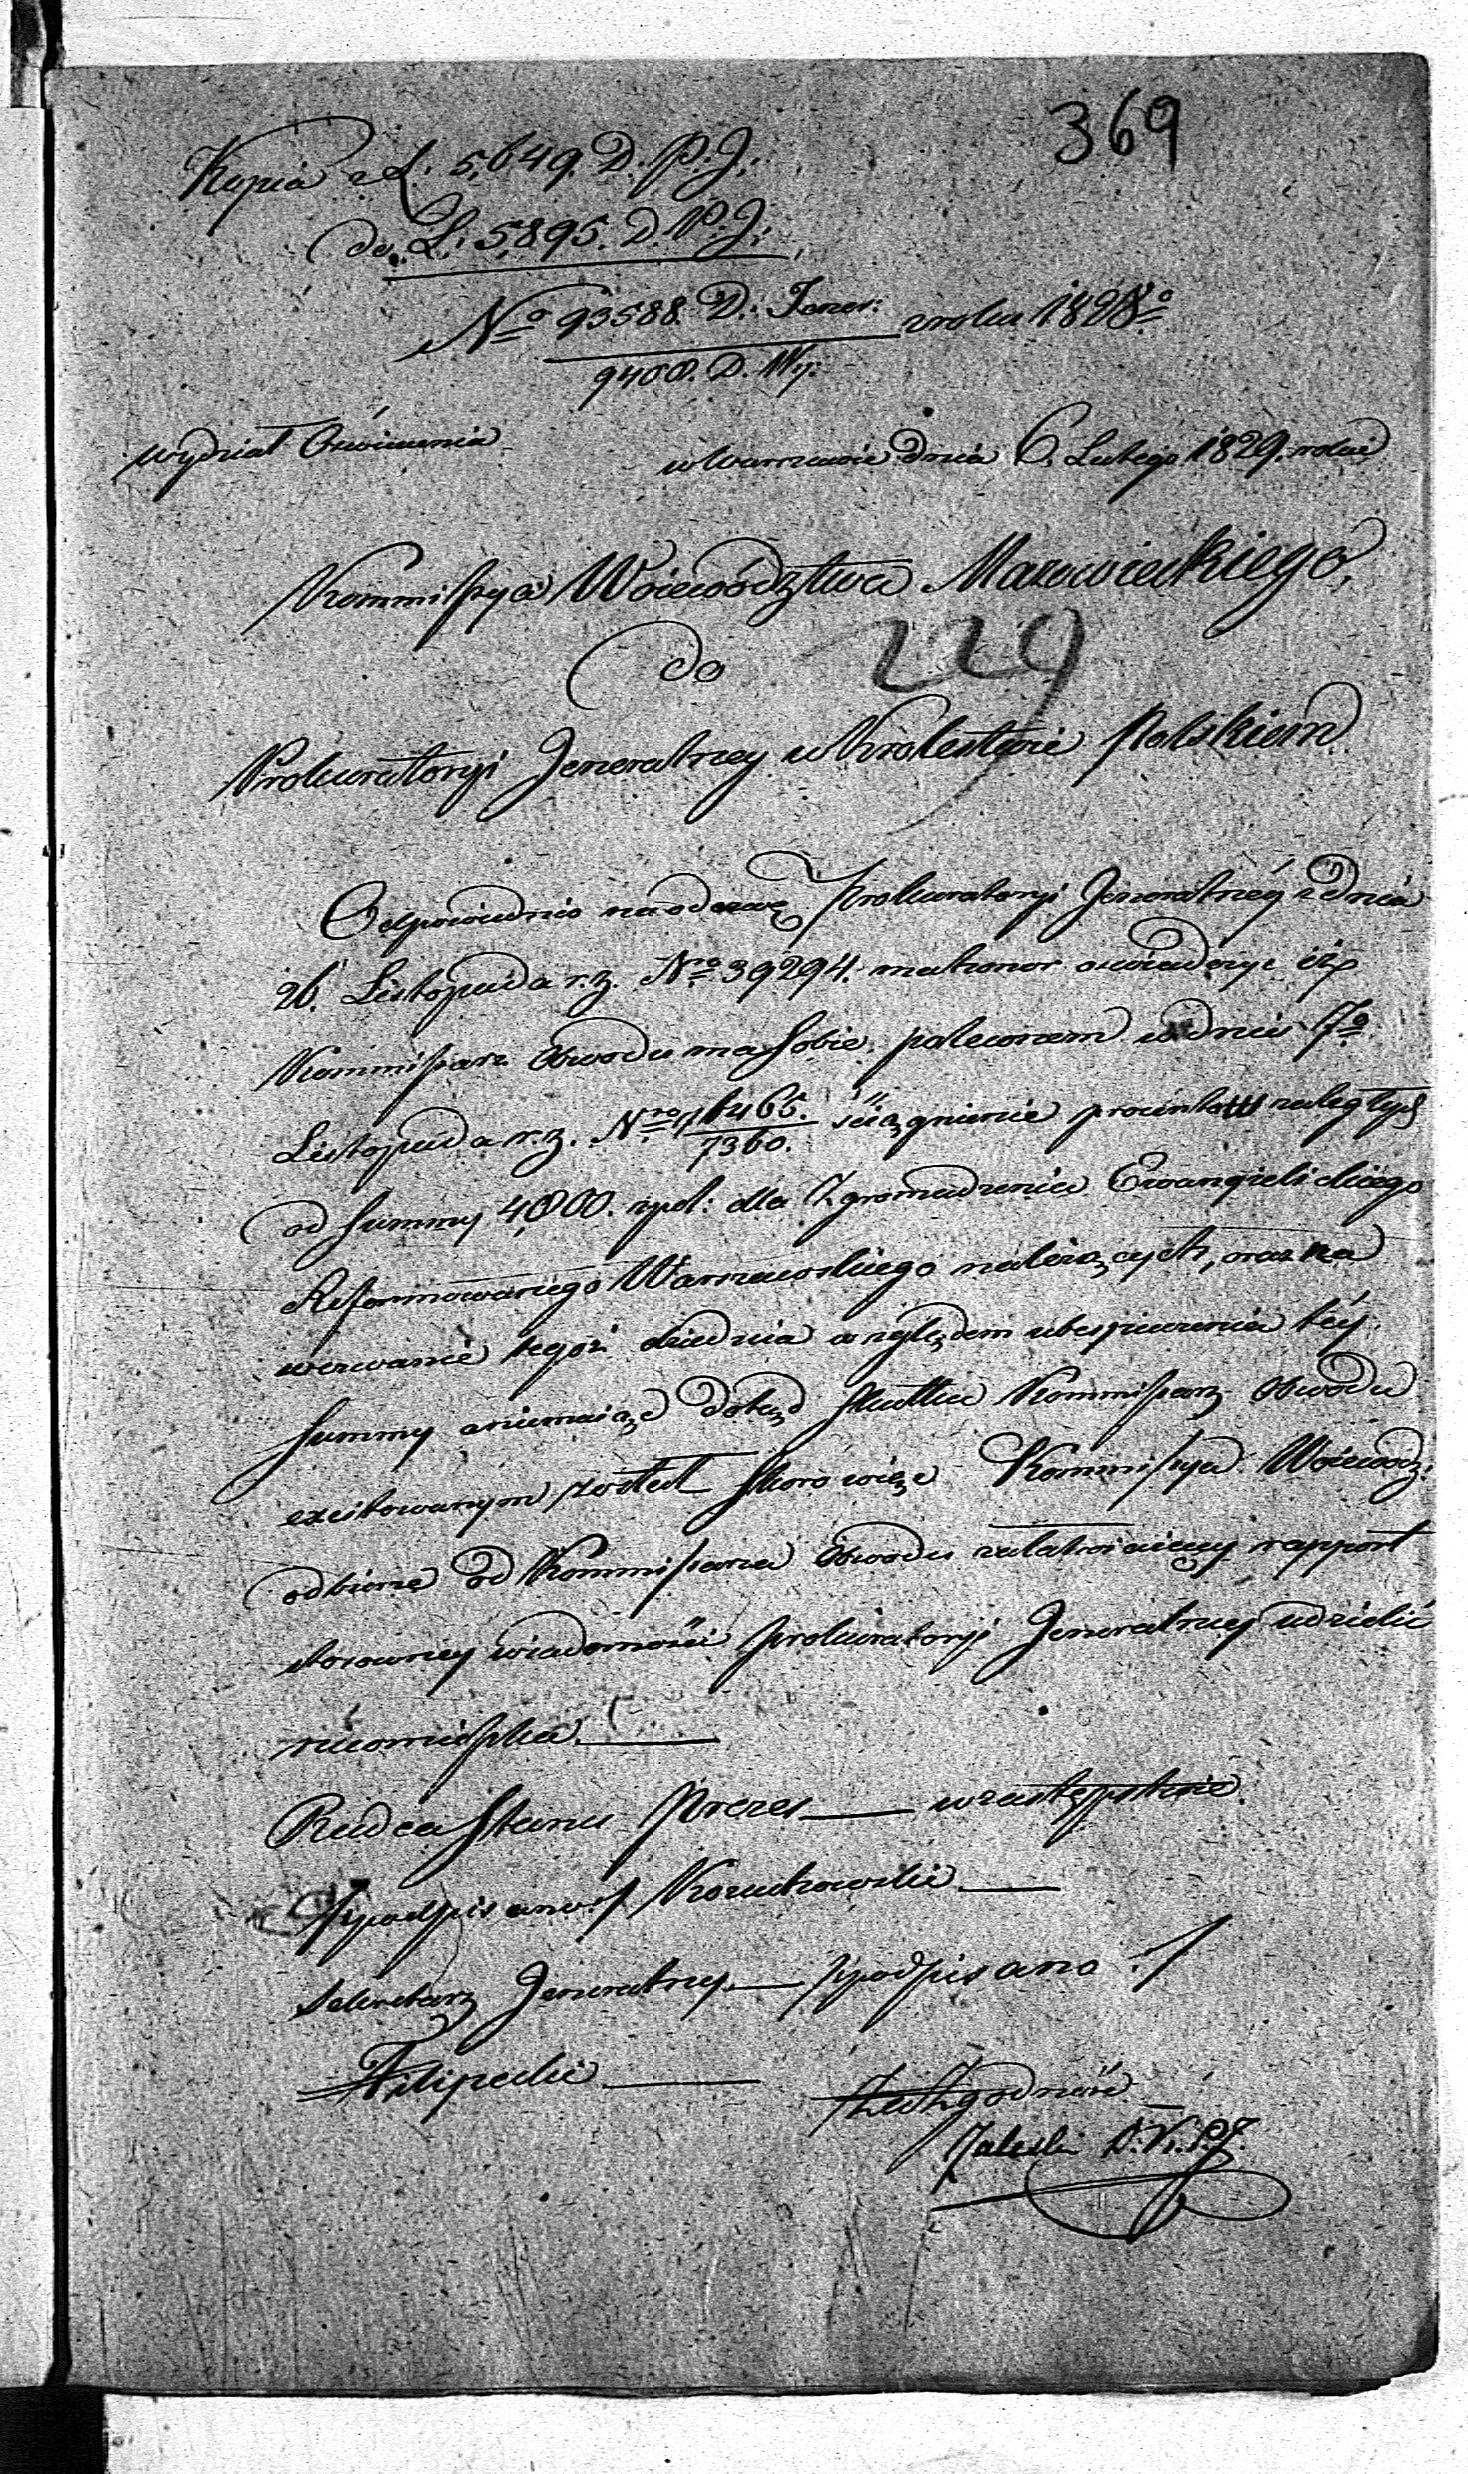 369
Kopia z L: 5,649. D. P. J.
do L: 5,895. D. P. J.
Nº 93588. D: Jener: z roku 1828º
9400. D. Wy:
Wydział Oświecenia w Warszawie dnia 6. Lutego 1829. roku
Kommissya Woiewództwa Mazowieckiego,
do
229
Prokuratoryi Jeneralney w Krolestwie Polskiem
Odpowiednio na odezwę Prokuratoryi Jeneralnéy z dnia
26. Listopada r. z. Nro 39294. ma honor oświadczyć iż
Kommissarz Obwodu ma sobie poleconem w dniu 7º
Listopada r. z. Nro 76465./7360. ściągnienie procentow zaległych
od summy 4,000. zpol: dla Zgromadzenia Ewangielickiego
Reformowanego Warszawskiego należących, oraz na
wezwanie tegoż względem ubespieczenia téy
summy a niemaiąc dotąd skutku Kommissarz Obwodu
excitowanym został skoro więc Kommissya Woiewódz:
odbierze od Kommissarza Obwodu załatwiaiący rapport
stosowney wiadomości Prokuratoryi Jeneralney udzielić
nieomieszka.
Radca Stanu Prezes w zastępstwie
/podpisano/ Kozuchowski
Sekretarz Jeneralny /podpisano:/
Filipecki
Za Zgodność
Zaleski D. K. P. J.